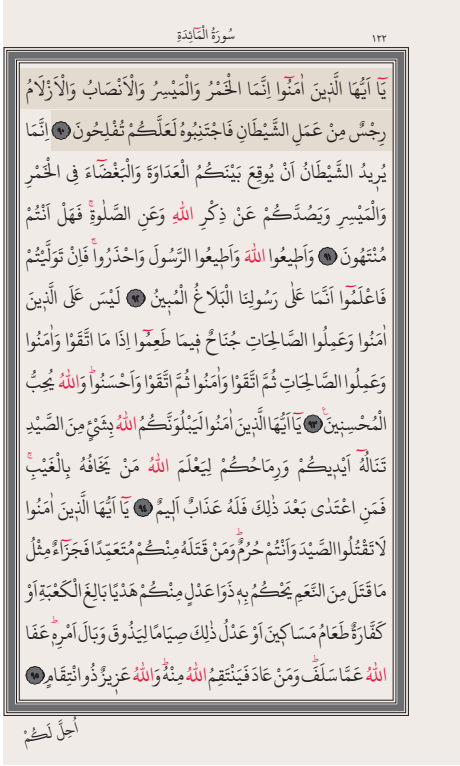 سُورَةُ الْمَائِدَةِ
١٢٢
يَٓا اَيُّهَا الَّذِينَ اٰمَنُٓوا اِنَّمَا الْخَمْرُ وَالْمَيْسِرُ وَالْاَنْصَابُ وَالْاَزْلَامُ
رِجْسٌ مِنْ عَمَلِ الشَّيْطَانِ فَاجْتَنِبُوهُ لَعَلَّكُمْ تُفْلِحُونَ ﴿٩٠﴾ اِنَّمَا
يُرِيدُ الشَّيْطَانُ اَنْ يُوقِعَ بَيْنَكُمُ الْعَدَاوَةَ وَالْبَغْضَٓاءَ فِى الْخَمْرِ
وَالْمَيْسِرِ وَيَصُدَّكُمْ عَنْ ذِكْرِ اللّٰهِ وَعَنِ الصَّلٰوةِۚ فَهَلْ اَنْتُمْ
مُنْتَهُونَ ﴿٩١﴾ وَاَطِيعُوا اللّٰهَ وَاَطِيعُوا الرَّسُولَ وَاحْذَرُواۚ فَاِنْ تَوَلَّيْتُمْ
فَاعْلَمُٓوا اَنَّمَا عَلٰى رَسُولِنَا الْبَلَاغُ الْمُبِينُ ﴿٩٢﴾ لَيْسَ عَلَى الَّذِينَ
اٰمَنُوا وَعَمِلُوا الصَّالِحَاتِ جُنَاحٌ فِيمَا طَعِمُٓوا اِذَا مَا اتَّقَوْا وَاٰمَنُوا
وَعَمِلُوا الصَّالِحَاتِ ثُمَّ اتَّقَوْا وَاٰمَنُوا ثُمَّ اتَّقَوْا وَاَحْسَنُواۜ وَاللّٰهُ يُحِبُّ
الْمُحْسِنِينَ۟ ﴿٩٣﴾ يَٓا اَيُّهَا الَّذِينَ اٰمَنُوا لَيَبْلُوَنَّكُمُ اللّٰهُ بِشَىْءٍ مِنَ الصَّيْدِ
تَنَالُهُٓ اَيْدِيكُمْ وَرِمَاحُكُمْ لِيَعْلَمَ اللّٰهُ مَنْ يَخَافُهُ بِالْغَيْبِۚ
فَمَنِ اعْتَدٰى بَعْدَ ذٰلِكَ فَلَهُ عَذَابٌ اَلِيمٌ ﴿٩٤﴾ يَٓا اَيُّهَا الَّذِينَ اٰمَنُوا
لَا تَقْتُلُوا الصَّيْدَ وَاَنْتُمْ حُرُمٌۜ وَمَنْ قَتَلَهُ مِنْكُمْ مُتَعَمِّدًا فَجَزَٓاءٌ مِثْلُ
مَا قَتَلَ مِنَ النَّعَمِ يَحْكُمُ بِهِ ذَوَا عَدْلٍ مِنْكُمْ هَدْيًا بَالِغَ الْكَعْبَةِ اَوْ
كَفَّارَةٌ طَعَامُ مَسَاكِينَ اَوْ عَدْلُ ذٰلِكَ صِيَامًا لِيَذُوقَ وَبَالَ اَمْرِهِۜ عَفَا
اللّٰهُ عَمَّا سَلَفَۜ وَمَنْ عَادَ فَيَنْتَقِمُ اللّٰهُ مِنْهُۜ وَاللّٰهُ عَزِيزٌ ذُو انْتِقَامٍ ﴿٩٥﴾
اُحِلَّ لَكُمْ